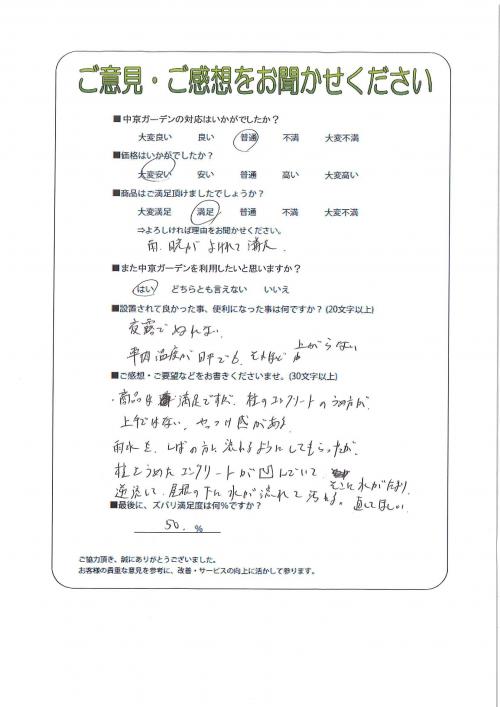 ご意見・ご感想をお聞かせください
■中京ガーデンの対応はいかがでしたか？
大変良い 良い 普通 不満 大変不満
■価格はいかがでしたか？
大変安い 安い 普通 高い 大変高い
■商品はご満足頂けましたでしょうか？
大変満足 満足 普通 不満 大変不満
⇒よろしければ理由をお聞かせください。
雨、日除が よけれて 満足.
■また中京ガーデンを利用したいと思いますか？
はい どちらとも言えない いいえ
■設置されて良かった事、便利になった事は何ですか？(20文字以上)
夜露でぬれない
車内温度が日中でも、それほど 上がらない
■ご感想・ご要望などをお書きくださいませ。(30文字以上)
・商品は 満足ですが、柱のコンクリートのうめ方が、
上手ではない、やっつけ感がある
雨水を、しばの方に流れるようにしてもらったが、
柱をうめたコンクリートが凹んでいて、そこに水がたまり、
逆流して、屋根の下に水が流れて汚れる。直してほしい
■最後に、ズバリ満足度は何％ですか？
50. %
ご協力頂き、誠にありがとうございました。
お客様の貴重な意見を参考に、改善・サービスの向上に活かして参ります。